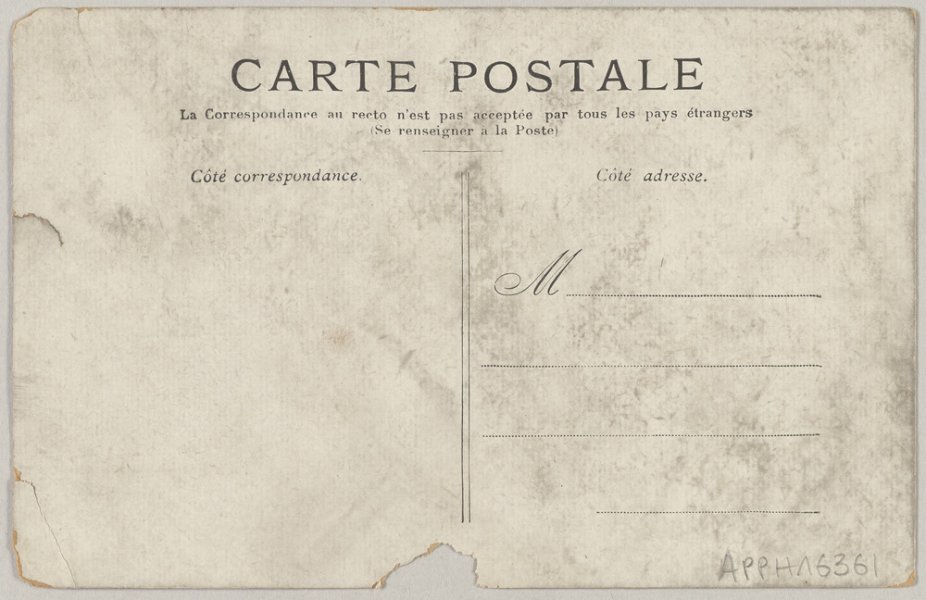 CARTE POSTALE
La Correspondance au recto n'est pas acceptée par tous les pays étrangers
(Se renseigner à la Poste)
Côté correspondance.
Côté adresse.
M
APPH16361